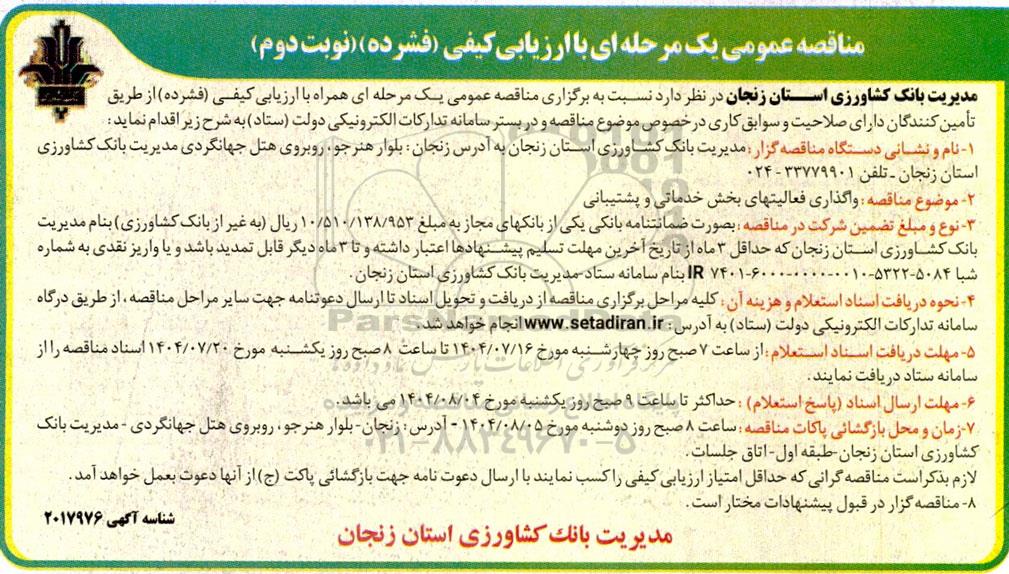 مناقصه عمومی یک مرحله ای با ارزیابی کیفی (فشرده) (نوبت دوم)
مدیریت بانک کشاورزی استان زنجان در نظر دارد نسبت به برگزاری مناقصه عمومی یک مرحله ای همراه با ارزیابی کیفی (فشرده) از طریق
تأمین کنندگان دارای صلاحیت و سوابق کاری درخصوص موضوع مناقصه و در بستر سامانه تدارکات الکترونیکی دولت (ستاد) به شرح زیر اقدام نماید:
۱- نام و نشانی دستگاه مناقصه گزار: مدیریت بانک کشاورزی استان زنجان به آدرس زنجان: بلوار هنرجو، روبروی هتل جهانگردی مدیریت بانک کشاورزی
استان زنجان ـ تلفن ۳۳۷۷۹۹۰۱ - ۰۲۴
۲- موضوع مناقصه: واگذاری فعالیتهای بخش خدماتی و پشتیبانی
۳- نوع و مبلغ تضمین شرکت در مناقصه: بصورت ضمانتنامه بانکی یکی از بانکهای مجاز به مبلغ ۱۰/۵۱۰/۱۳۸/۹۵۳ ریال (به غیر از بانک کشاورزی) بنام مدیریت
بانک کشاورزی استان زنجان که حداقل ۳ ماه از تاریخ آخرین مهلت تسلیم پیشنهادها اعتبار داشته و تا ۳ ماه دیگر قابل تمدید باشد و یا واریز نقدی به شماره
شبا IR ۷۴۰۱-۶۰۰۰-۰۰۰۰-۰۰۱۰-۵۳۲۲-۵۰۸۴ بنام سامانه ستاد-مدیریت بانک کشاورزی استان زنجان.
۴- نحوه دریافت اسناد استعلام و هزینه آن: کلیه مراحل برگزاری مناقصه از دریافت و تحویل اسناد تا ارسال دعوتنامه جهت سایر مراحل مناقصه، از طریق درگاه
سامانه تدارکات الکترونیکی دولت (ستاد) به آدرس: www.setadiran.ir انجام خواهد شد.
۵- مهلت دریافت اسناد استعلام: از ساعت ۷ صبح روز چهارشنبه مورخ ۱۴۰۴/۰۷/۱۶ تا ساعت ۸ صبح روز یکشنبه مورخ ۱۴۰۴/۰۷/۲۰ اسناد مناقصه را از
سامانه ستاد دریافت نمایند.
۶- مهلت ارسال اسناد (پاسخ استعلام): حداکثر تا ساعت ۹ صبح روز یکشنبه مورخ ۱۴۰۴/۰۸/۰۴ می باشد.
۷- زمان و محل بازگشائی پاکات مناقصه: ساعت ۸ صبح روز دوشنبه مورخ ۱۴۰۴/۰۸/۰۵ - آدرس: زنجان- بلوار هنرجو، روبروی هتل جهانگردی - مدیریت بانک
کشاورزی استان زنجان-طبقه اول-اتاق جلسات.
لازم بذکر است مناقصه گرانی که حداقل امتیاز ارزیابی کیفی را کسب نمایند با ارسال دعوت نامه جهت بازگشائی پاکت (ج) از آنها دعوت بعمل خواهد آمد.
۸- مناقصه گزار در قبول پیشنهادات مختار است.
شناسه آگهی ۲۰۱۷۹۷۶
مدیریت بانک کشاورزی استان زنجان
ParsNamadData
۰۲۱-۸۸۳۴۹۶۷۰-۵